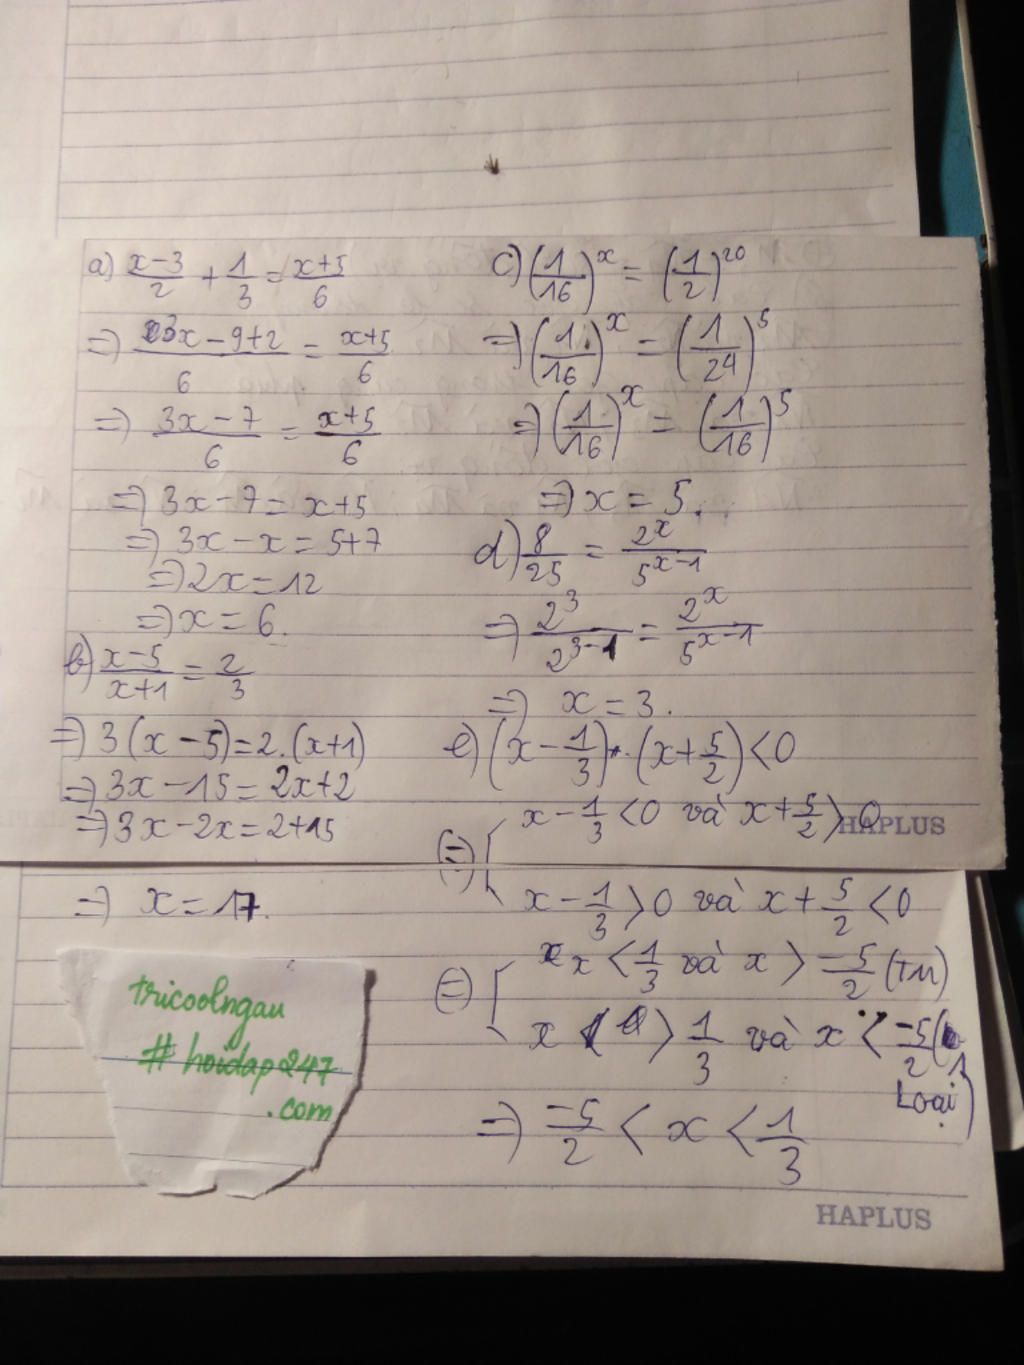 a) \frac{x-3}{2} + \frac{1}{3} = \frac{x+5}{6}
=> \frac{3x-9+2}{6} = \frac{x+5}{6}
=> \frac{3x-7}{6} = \frac{x+5}{6}
=> 3x-7 = x+5
=> 3x-x = 5+7
=> 2x = 12
=> x = 6.
b) \frac{x-5}{x+1} = \frac{2}{3}
=> 3(x-5) = 2.(x+1)
=> 3x-15 = 2x+2
=> 3x-2x = 2+15
=> x = 17.
tricoolngau
# hoidap247
.com
c) (\frac{1}{16})^x = (\frac{1}{2})^{20}
=> (\frac{1}{16})^x = (\frac{1}{2^4})^5
=> (\frac{1}{16})^x = (\frac{1}{16})^5
=> x = 5.
d) \frac{8}{25} = \frac{2^x}{5^{x-1}}
=> \frac{2^3}{2^{3-1}} = \frac{2^x}{5^{x-1}}
=> x = 3.
e) (x-\frac{1}{3}).(x+\frac{5}{2}) < 0
(=) [ x-\frac{1}{3} < 0 và x+\frac{5}{2} > 0
x-\frac{1}{3} > 0 và x+\frac{5}{2} < 0
(=) [ x < \frac{1}{3} và x > \frac{-5}{2} (TM)
x > \frac{1}{3} và x < \frac{-5}{2} (
Loại)
=> \frac{-5}{2} < x < \frac{1}{3}
HAPLUS
HAPLUS